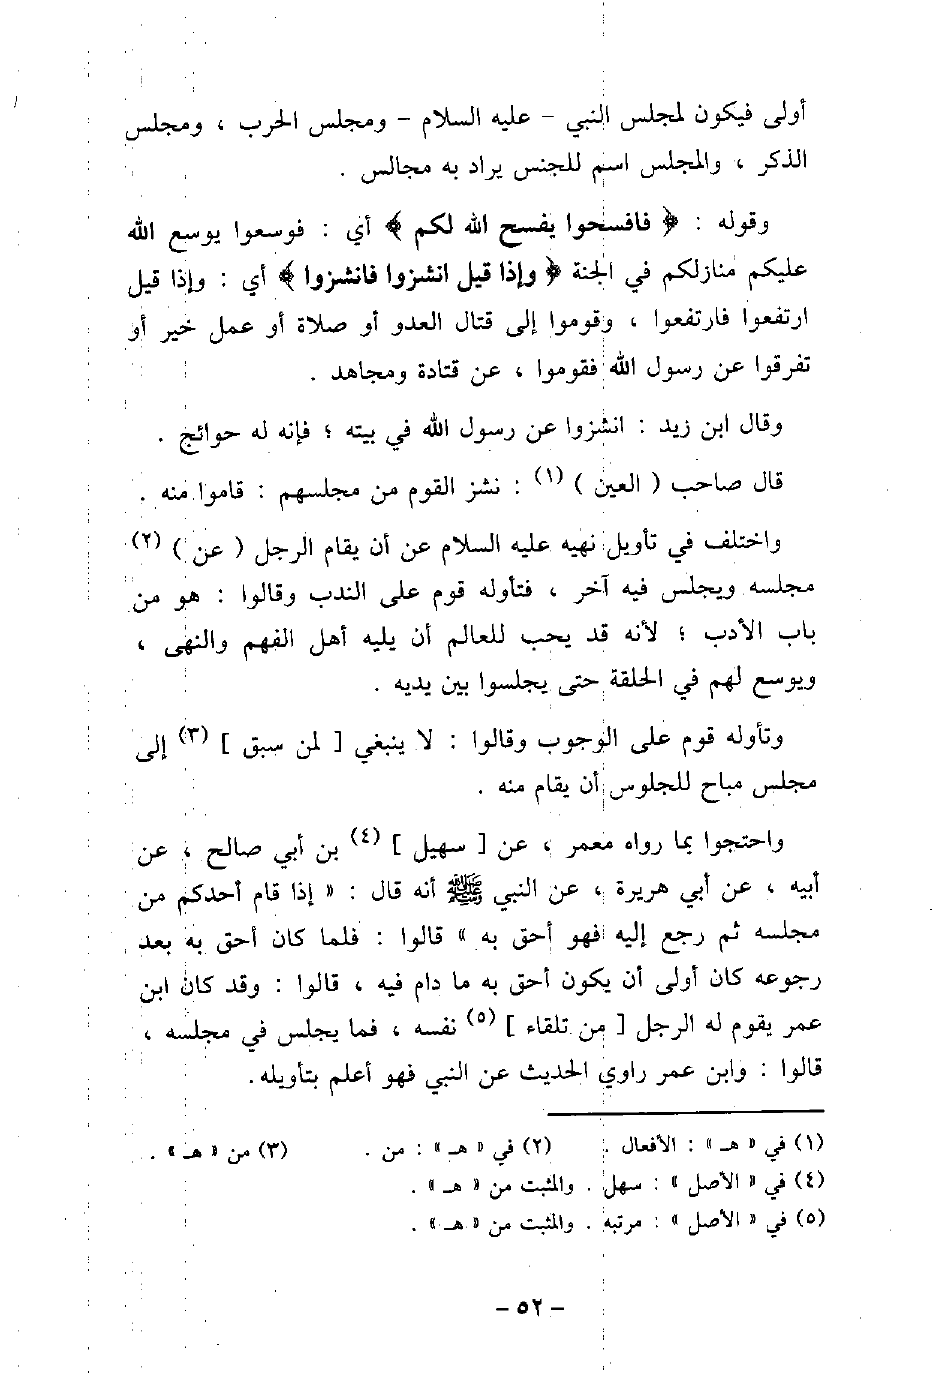 أولى فيكون لمجلس النبي – عليه السلام – ومجلس الحرب ، ومجلس
الذكر ، والمجلس اسم للجنس يراد به مجالس .
وقوله : ﴿ فافسحوا يفسح الله لكم ﴾ أي : فوسعوا يوسع الله
عليكم منازلكم في الجنة ﴿ وإذا قيل انشزوا فانشزوا ﴾ أي : وإذا قيل
ارتفعوا فارتفعوا ، وقوموا إلى قتال العدو أو صلاة أو عمل خير أو
تفرقوا عن رسول الله فقوموا ، عن قتادة ومجاهد .
وقال ابن زيد : انشزوا عن رسول الله في بيته ؛ فإنه له حوائج .
قال صاحب ( العين ) (١) : نشز القوم من مجلسهم : قاموا منه .
واختلف في تأويل نهيه عليه السلام عن أن يقام الرجل ( عن ) (٢)
مجلسه ويجلس فيه آخر ، فتأوله قوم على الندب وقالوا : هو من
باب الأدب ؛ لأنه قد يحب للعالم أن يليه أهل الفهم والنهى ،
ويوسع لهم في الحلقة حتى يجلسوا بين يديه .
وتأوله قوم على الوجوب وقالوا : لا ينبغي [ لمن سبق ] (٣) إلى
مجلس مباح للجلوس أن يقام منه .
واحتجوا بما رواه معمر ، عن [ سهيل ] (٤) بن أبي صالح ، عن
أبيه ، عن أبي هريرة ، عن النبي ﷺ أنه قال : « إذا قام أحدكم من
مجلسه ثم رجع إليه فهو أحق به » قالوا : فلما كان أحق به بعد
رجوعه كان أولى أن يكون أحق به ما دام فيه ، قالوا : وقد كان ابن
عمر يقوم له الرجل [ من تلقاء ] (٥) نفسه ، فما يجلس في مجلسه ،
قالوا : وابن عمر راوي الحديث عن النبي فهو أعلم بتأويله.
(١) في « هـ » : الأفعال . (٢) في « هـ » : من . (٣) من « هـ » .
(٤) في « الأصل » : سهل . والمثبت من « هـ » .
(٥) في « الأصل » : مرتبه . والمثبت من « هـ » .
– ٥٢ –